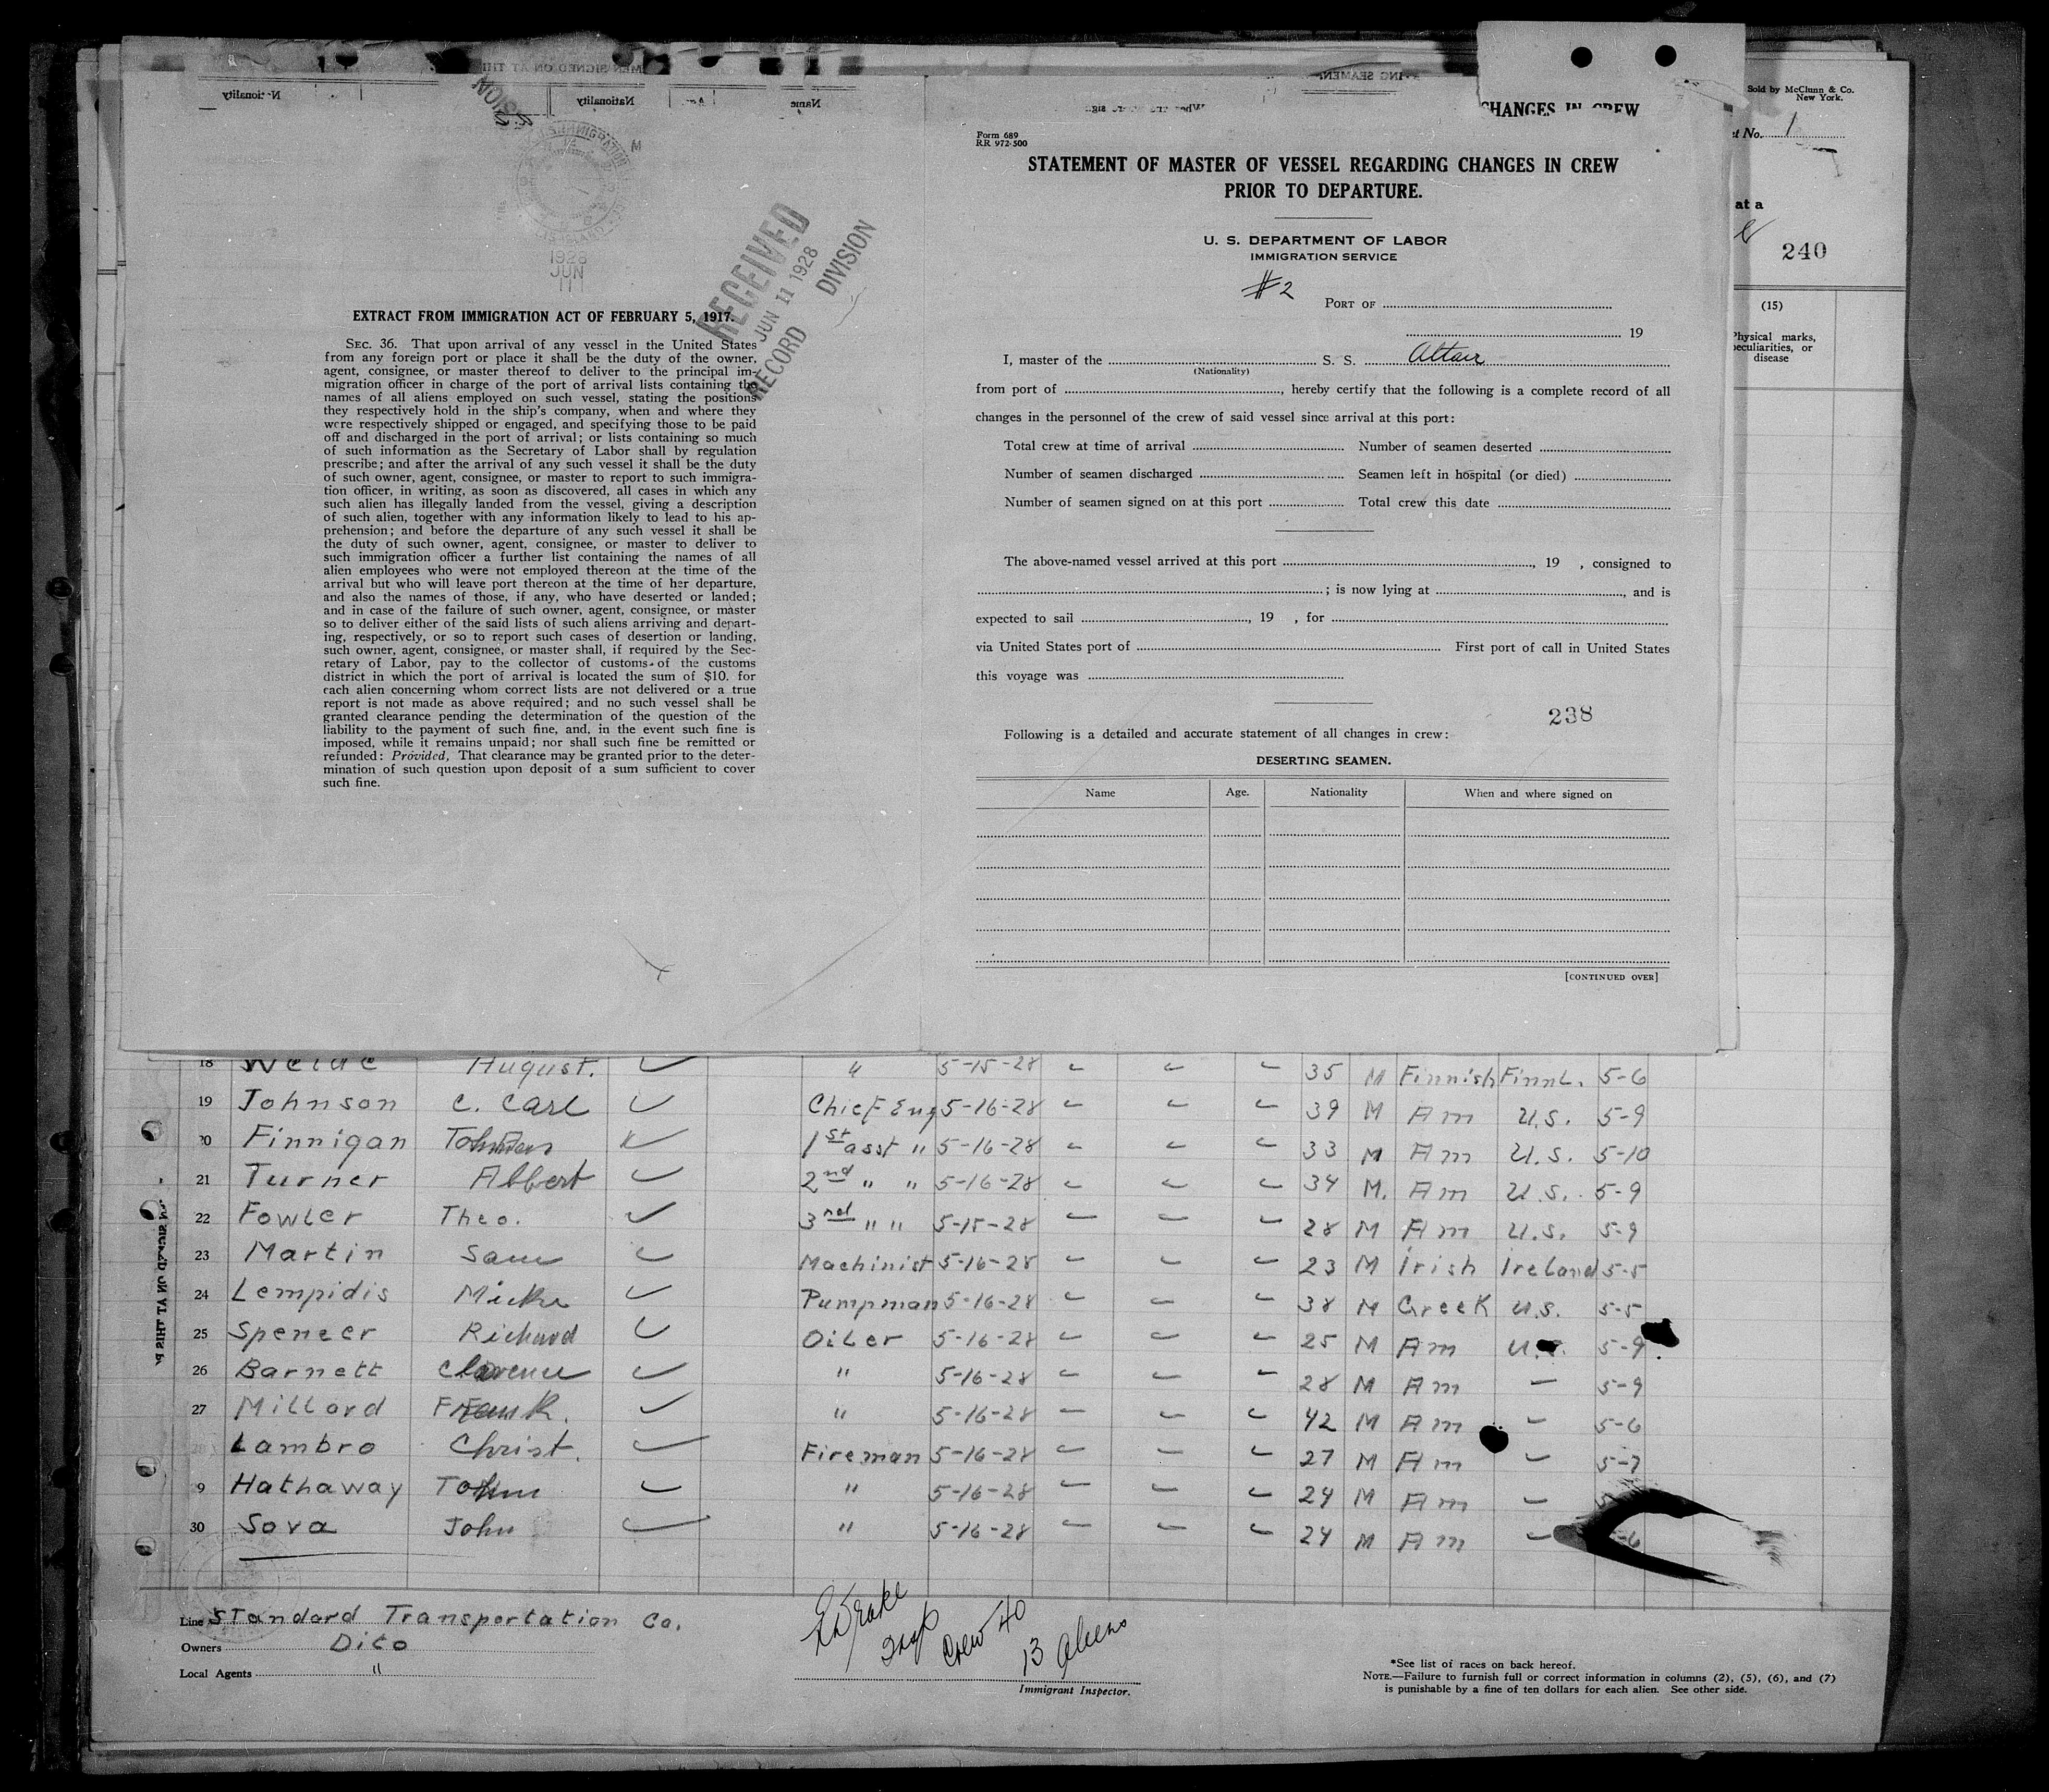 Nationality
Nationality
Name
CHANGES IN CREW
Sold by McClunn & Co.
New York.
t No. 1
at a
240
(15)
Physical marks,
peculiarities, or
disease
1928
JUN
RECEIVED
JUN 11 1928
RECORD DIVISION
EXTRACT FROM IMMIGRATION ACT OF FEBRUARY 5, 1917.
SEC. 36. That upon arrival of any vessel in the United States
from any foreign port or place it shall be the duty of the owner,
agent, consignee, or master thereof to deliver to the principal im-
migration officer in charge of the port of arrival lists containing the
names of all aliens employed on such vessel, stating the positions
they respectively hold in the ship's company, when and where they
were respectively shipped or engaged, and specifying those to be paid
off and discharged in the port of arrival; or lists containing so much
of such information as the Secretary of Labor shall by regulation
prescribe; and after the arrival of any such vessel it shall be the duty
of such owner, agent, consignee, or master to report to such immigra-
tion officer, in writing, as soon as discovered, all cases in which any
such alien has illegally landed from the vessel, giving a description
of such alien, together with any information likely to lead to his ap-
prehension; and before the departure of any such vessel it shall be
the duty of such owner, agent, consignee, or master to deliver to
such immigration officer a further list containing the names of all
alien employees who were not employed thereon at the time of the
arrival but who will leave port thereon at the time of her departure,
and also the names of those, if any, who have deserted or landed;
and in case of the failure of such owner, agent, consignee, or master
so to deliver either of the said lists of such aliens arriving and depart-
ing, respectively, or so to report such cases of desertion or landing,
such owner, agent, consignee, or master shall, if required by the Sec-
retary of Labor, pay to the collector of customs of the customs
district in which the port of arrival is located the sum of $10. for
each alien concerning whom correct lists are not delivered or a true
report is not made as above required; and no such vessel shall be
granted clearance pending the determination of the question of the
liability to the payment of such fine, and, in the event such fine is
imposed, while it remains unpaid; nor shall such fine be remitted or
refunded: Provided, That clearance may be granted prior to the deter-
mination of such question upon deposit of a sum sufficient to cover
such fine.
Form 689
RR 972-500
STATEMENT OF MASTER OF VESSEL REGARDING CHANGES IN CREW
PRIOR TO DEPARTURE.
U. S. DEPARTMENT OF LABOR
IMMIGRATION SERVICE
#2
PORT OF
19
I, master of the S. S. Altair
(Nationality)
from port of , hereby certify that the following is a complete record of all
changes in the personnel of the crew of said vessel since arrival at this port:
Total crew at time of arrival Number of seamen deserted
Number of seamen discharged Seamen left in hospital (or died)
Number of seamen signed on at this port Total crew this date
The above-named vessel arrived at this port , 19 , consigned to
; is now lying at , and is
expected to sail , 19 , for
via United States port of First port of call in United States
this voyage was
238
Following is a detailed and accurate statement of all changes in crew:
DESERTING SEAMEN.
Name Age. Nationality When and where signed on
[CONTINUED OVER]
18 August. " 5-15-28 35 M Finnish Finnl. 5-6
19 Johnson C. Carl Chief Eng 5-16-28 39 M Am U.S. 5-9
20 Finnigan 1st asst " 5-16-28 33 M Am U.S. 5-10
21 Turner Albert 2nd " " 5-16-28 34 M. Am U.S. 5-9
22 Fowler Theo. 3rd " " 5-15-28 28 M Am U.S. 5-9
23 Martin Sam Machinist 5-16-28 23 M Irish Ireland 5-5
24 Lempidis Mike Pumpman 5-16-28 38 M Greek U.S. 5-5
25 Spencer Richard Oiler 5-16-28 25 M Am 5-9
26 Barnett Clarence " 5-16-28 28 M Am 5-9
27 Millard Frank. " 5-16-28 42 M Am 5-6
Lambro Christ. Fireman 5-16-28 27 M Am 5-7
9 Hathaway John " 5-16-28 24 M Am
30 Sova John " 5-16-28 24 M Am -6
Line Standard Transportation Co.
Owners Dito
Local Agents "
Drake
Insp
Crew 40
13 Aliens
Immigrant Inspector.
*See list of races on back hereof.
NOTE.—Failure to furnish full or correct information in columns (2), (5), (6), and (7)
is punishable by a fine of ten dollars for each alien. See other side.